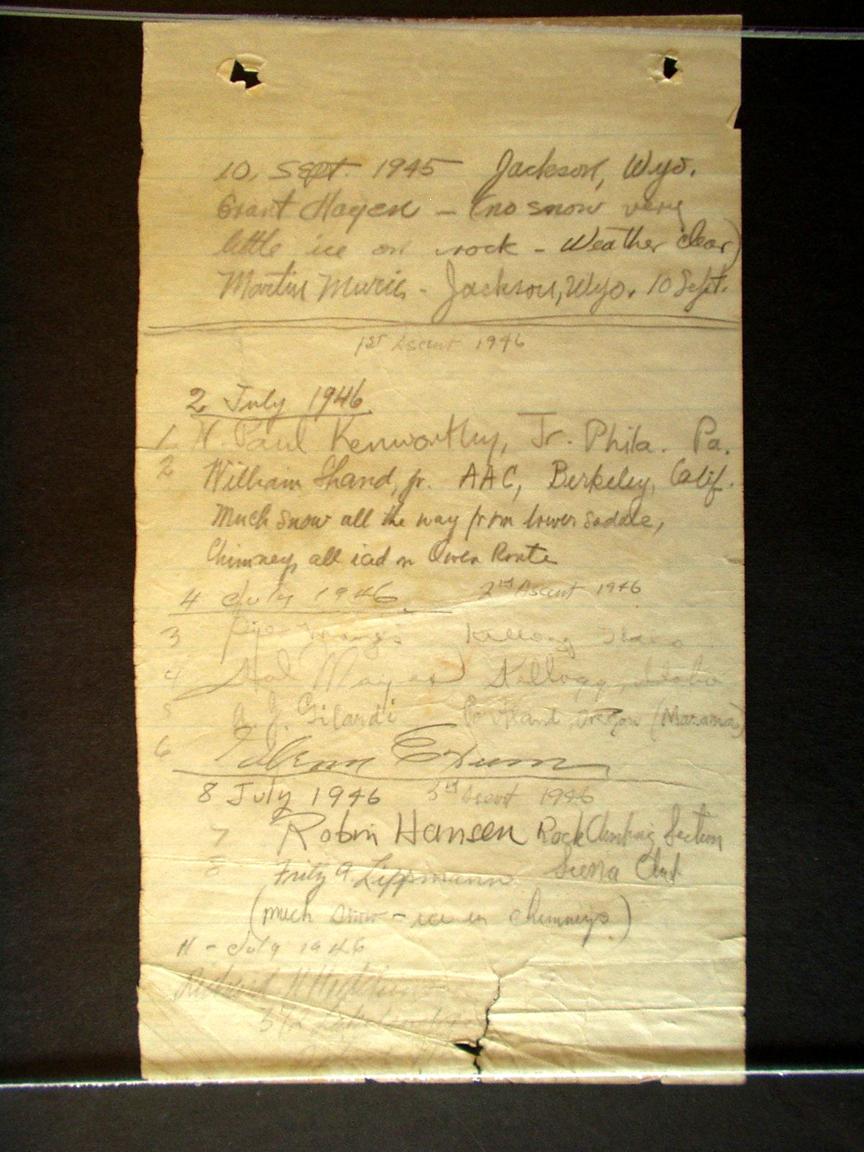 10, Sept. 1945 Jackson, Wyo.
Grant Hagen – (no snow very
little ice on rock – Weather clear)
Martin Murie - Jackson, Wyo. 10 Sept.
1st Ascent 1946
2 July 1946
1 N. Paul Kenworthy, Jr. Phila. Pa.
2 William Shand, jr. AAC, Berkeley, Calif.
Much snow all the way from lower saddle,
Chimneys all iced on Owen Route
4 July 1946 2nd Ascent 1946
3 Kellogg Idaho
4 Hal Kellogg, Idaho
5 A. J. Gilardi Portland Oregon (Mazama)
6 Glenn Exum
8 July 1946 3rd Ascent 1946
7 Robin Hansen Rock Climbing Section
8 Fritz A. Lippmann Sierra Club
(much snow – ice in chimneys.)
11 - July 1946
Richard